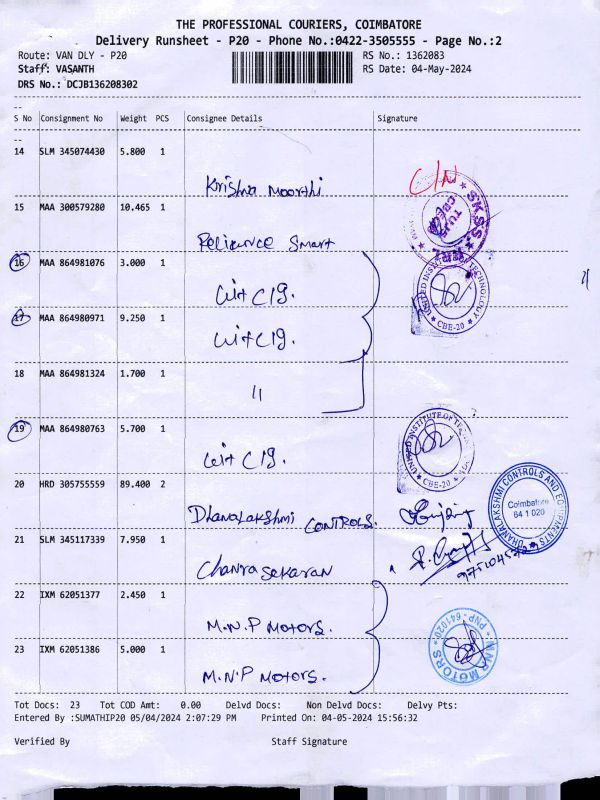 THE PROFESSIONAL COURIERS, COIMBATORE
Delivery Runsheet - P20 - Phone No.:0422-3505555 - Page No.:2
Route: VAN DLY - P20 RS No.: 1362083
Staff: VASANTH RS Date: 04-May-2024
DRS No.: DCJB136208302
S No Consignment No Weight PCS Consignee Details Signature
14 SLM 345074430 5.800 1
Krishna Moorthi
C/N
15 MAA 300579280 10.465 1
Relience Smart
SKSS
16 MAA 864981076 3.000 1
UNITED INSTITUTE OF TECHNOLOGY
CBE-20
17 MAA 864980971 9.250 1
18 MAA 864981324 1.700 1
11
19 MAA 864980763 5.700 1
UNITED INSTITUTE OF
CBE-20
20 HRD 305755559 89.400 2
Dhanalakshmi CONTROLS.
DHANALAKSHMI CONTROLS AND EQUIPMENTS
Coimbatore
641 020
21 SLM 345117339 7.950 1
Chanrasekaran
22 IXM 62051377 2.450 1
M.N.P Motors.
23 IXM 62051386 5.000 1
M.N.P Motors.
MOTORS
PNP - 641020
Tot Docs: 23 Tot COD Amt: 0.00 Delvd Docs: Non Delvd Docs: Delvy Pts:
Entered By :SUMATHIP20 05/04/2024 2:07:29 PM Printed On: 04-05-2024 15:56:32
Verified By Staff Signature